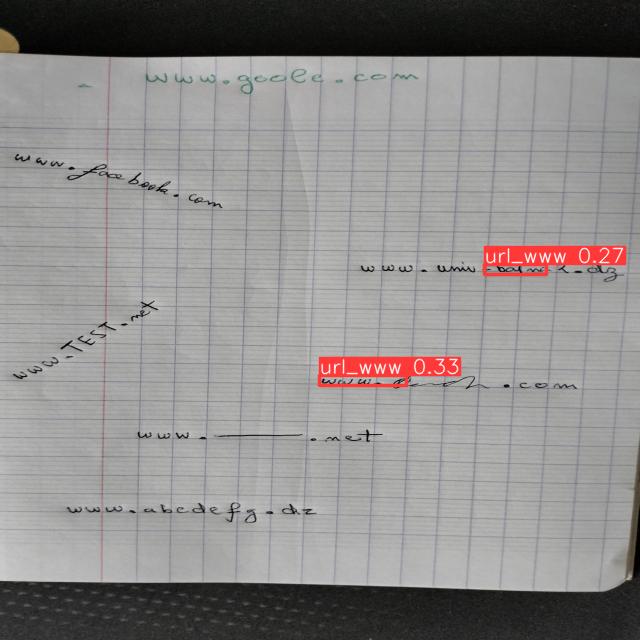 www.goole.com
www.facebook.com
url_www 0.27
www.univ-batna2.dz
www.TEST.net
url_www 0.33
www. .com
www.———.net
www.abcdefg.dz